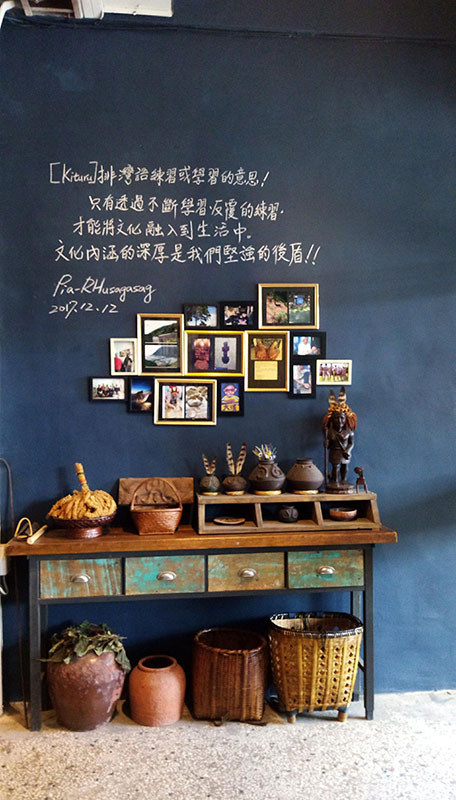 [Kituru]排灣語練習或學習的意思!
只有透過不斷學習,反覆的練習,
才能將文化融入到生活中。
文化內涵的深厚是我們堅強的後盾!!
Pia-RHusagasag
2017.12.12